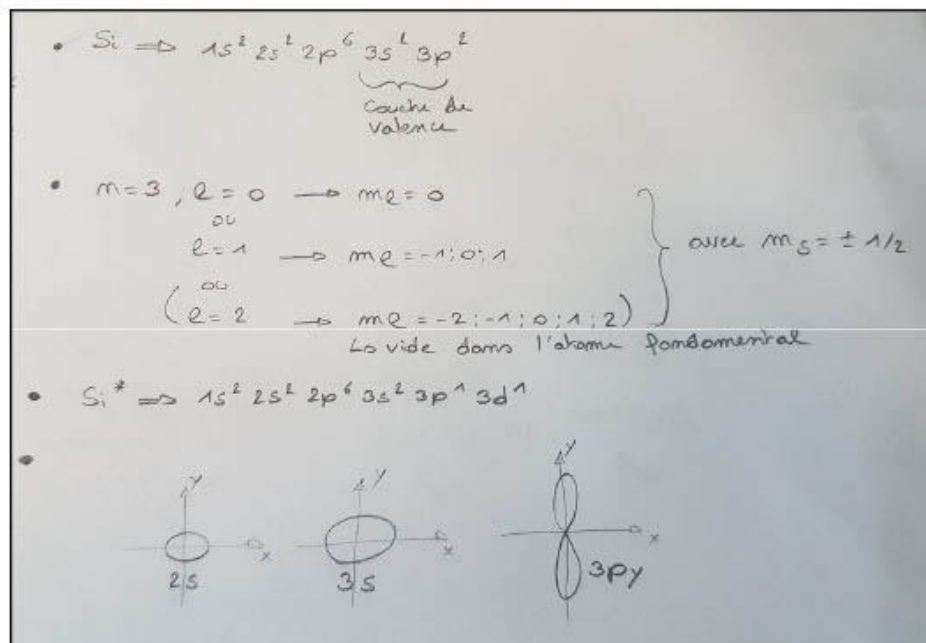 • Si ⇒ 1s² 2s² 2p⁶ 3s² 3p²
Couche de
valence
• n=3, l=0 → ml=0
ou
l=1 → ml=-1;0;1
avec ms = ± 1/2
ou
(l=2 → ml=-2;-1;0;1;2)
↳ vide dans l'atome fondamental
• Si* ⇒ 1s² 2s² 2p⁶ 3s² 3p¹ 3d¹
•
y y y
x x x
2s 3s 3py